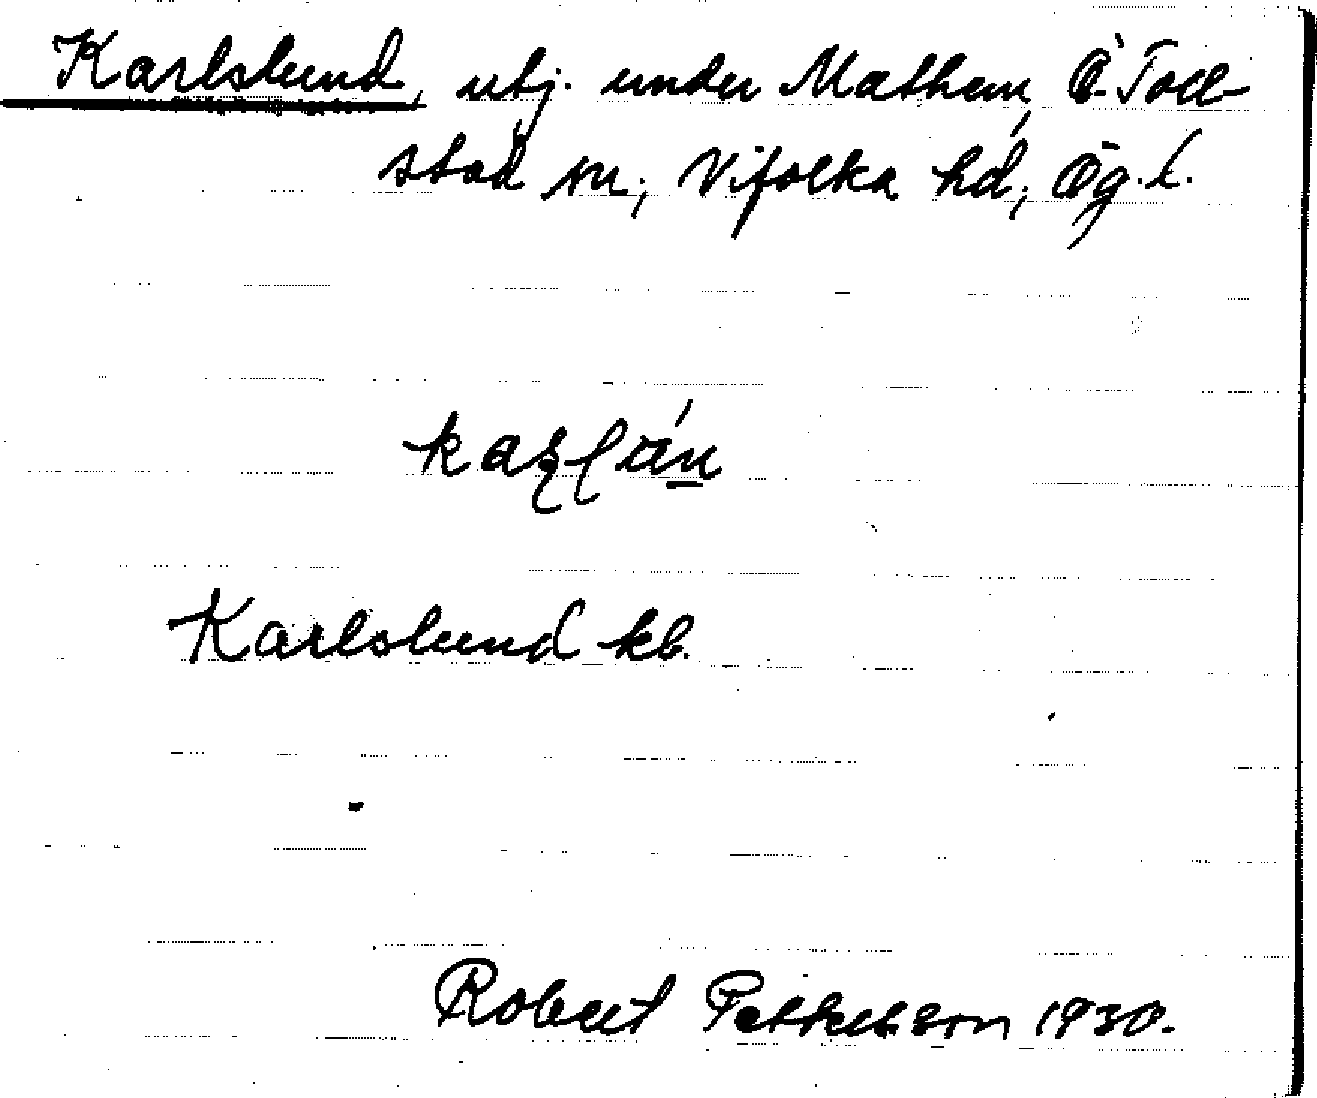 Karlslund, utj. under Mathem, Ö. Toll-
stad sn; Vifolka hd; Ög. l.
Karlslund kb.
Robert Pettersson 1930.